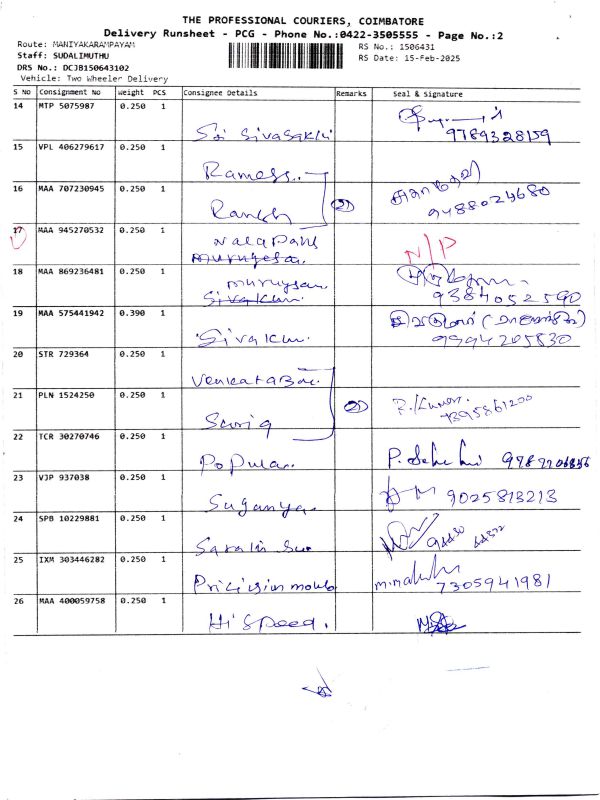 THE PROFESSIONAL COURIERS, COIMBATORE
Delivery Runsheet - PCG - Phone No.:0422-3505555 - Page No.:2
Route: MANIYAKARAMPAYAM
RS No.: 1506431
Staff: SUDALIMUTHU
RS Date: 15-Feb-2025
DRS No.: DCJB150643102
Vehicle: Two Wheeler Delivery
S No Consignment No Weight PCS Consignee Details Remarks Seal & Signature
14 MTP 5075987 0.250 1
Sri Sivasakthi 9789328159
15 VPL 406279617 0.250 1
Ramess
16 MAA 707230945 0.250 1
Ramesh 2 9488024680
17 MAA 945270532 0.250 1
murugesan N/P
18 MAA 869236481 0.250 1
murugesan
Sivakumar 9384052590
19 MAA 575441942 0.390 1
Sivakumar 9994205830
20 STR 729364 0.250 1
Venkatabac
21 PLN 1524250 0.250 1
2 P. Kumar 7395861200
22 TCR 30270746 0.250 1
Popular
23 VJP 937038 0.250 1
Suganya 9025813213
24 SPB 10229881 0.250 1
25 IXM 303446282 0.250 1
7305941981
26 MAA 400059758 0.250 1
Hi Speed.